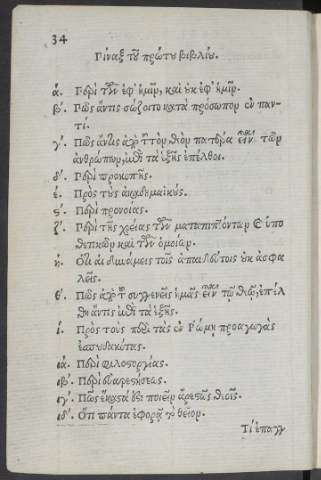 34
Πίναξ τοῦ πρώτου βιβλίου.
ά. Περὶ τῶν ἐφ' ἡμῖν, καὶ οὐκ ἐφ' ἡμῖν.
β'. Πῶς ἄν τις σώζοι τὸ κατὰ πρόσωπον ἐν παν-
τί.
γ'. Πῶς ἄν τις ἀπὸ τοῦ τὸν θεὸν πατέρα εἶναι τῶν
ἀνθρώπων, ἐπὶ τὰ ἑξῆς ἐπέλθοι.
δ'. Περὶ προκοπῆς.
έ. Πρὸς τοὺς ἀκαδημαϊκούς.
ς'. Περὶ προνοίας.
ζ'. Περὶ τῆς χρείας τῶν μεταπιπτόντων & ὑπο
θετικῶν καὶ τῶν ὁμοίων.
ή. Ὅτι αἱ δυνάμεις τοῖς ἀπαιδεύτοις οὐκ ἀσφα
λεῖς.
θ'. Πῶς ἀπὸ τοῦ συγγενεῖς ἡμᾶς εἶναι τῷ θεῷ, ἐπέλ
θη ἄν τις ἐπὶ τὰ ἑξῆς.
ί. Πρὸς τοὺς περὶ τὰς ἐν Ῥώμῃ προαγωγὰς
ἐσπουδακότας.
ιά. Περὶ φιλοστοργίας.
ιβ'. Περὶ εὐαρεστήσεως.
ιγ'. Πῶς ἕκαστα ἔστι ποιεῖν ἀρεστῶς θεοῖς.
ιδ'. Ὅτι πάντα ἐφορᾷ τὸ θεῖον.
Τί ἐπαγγ